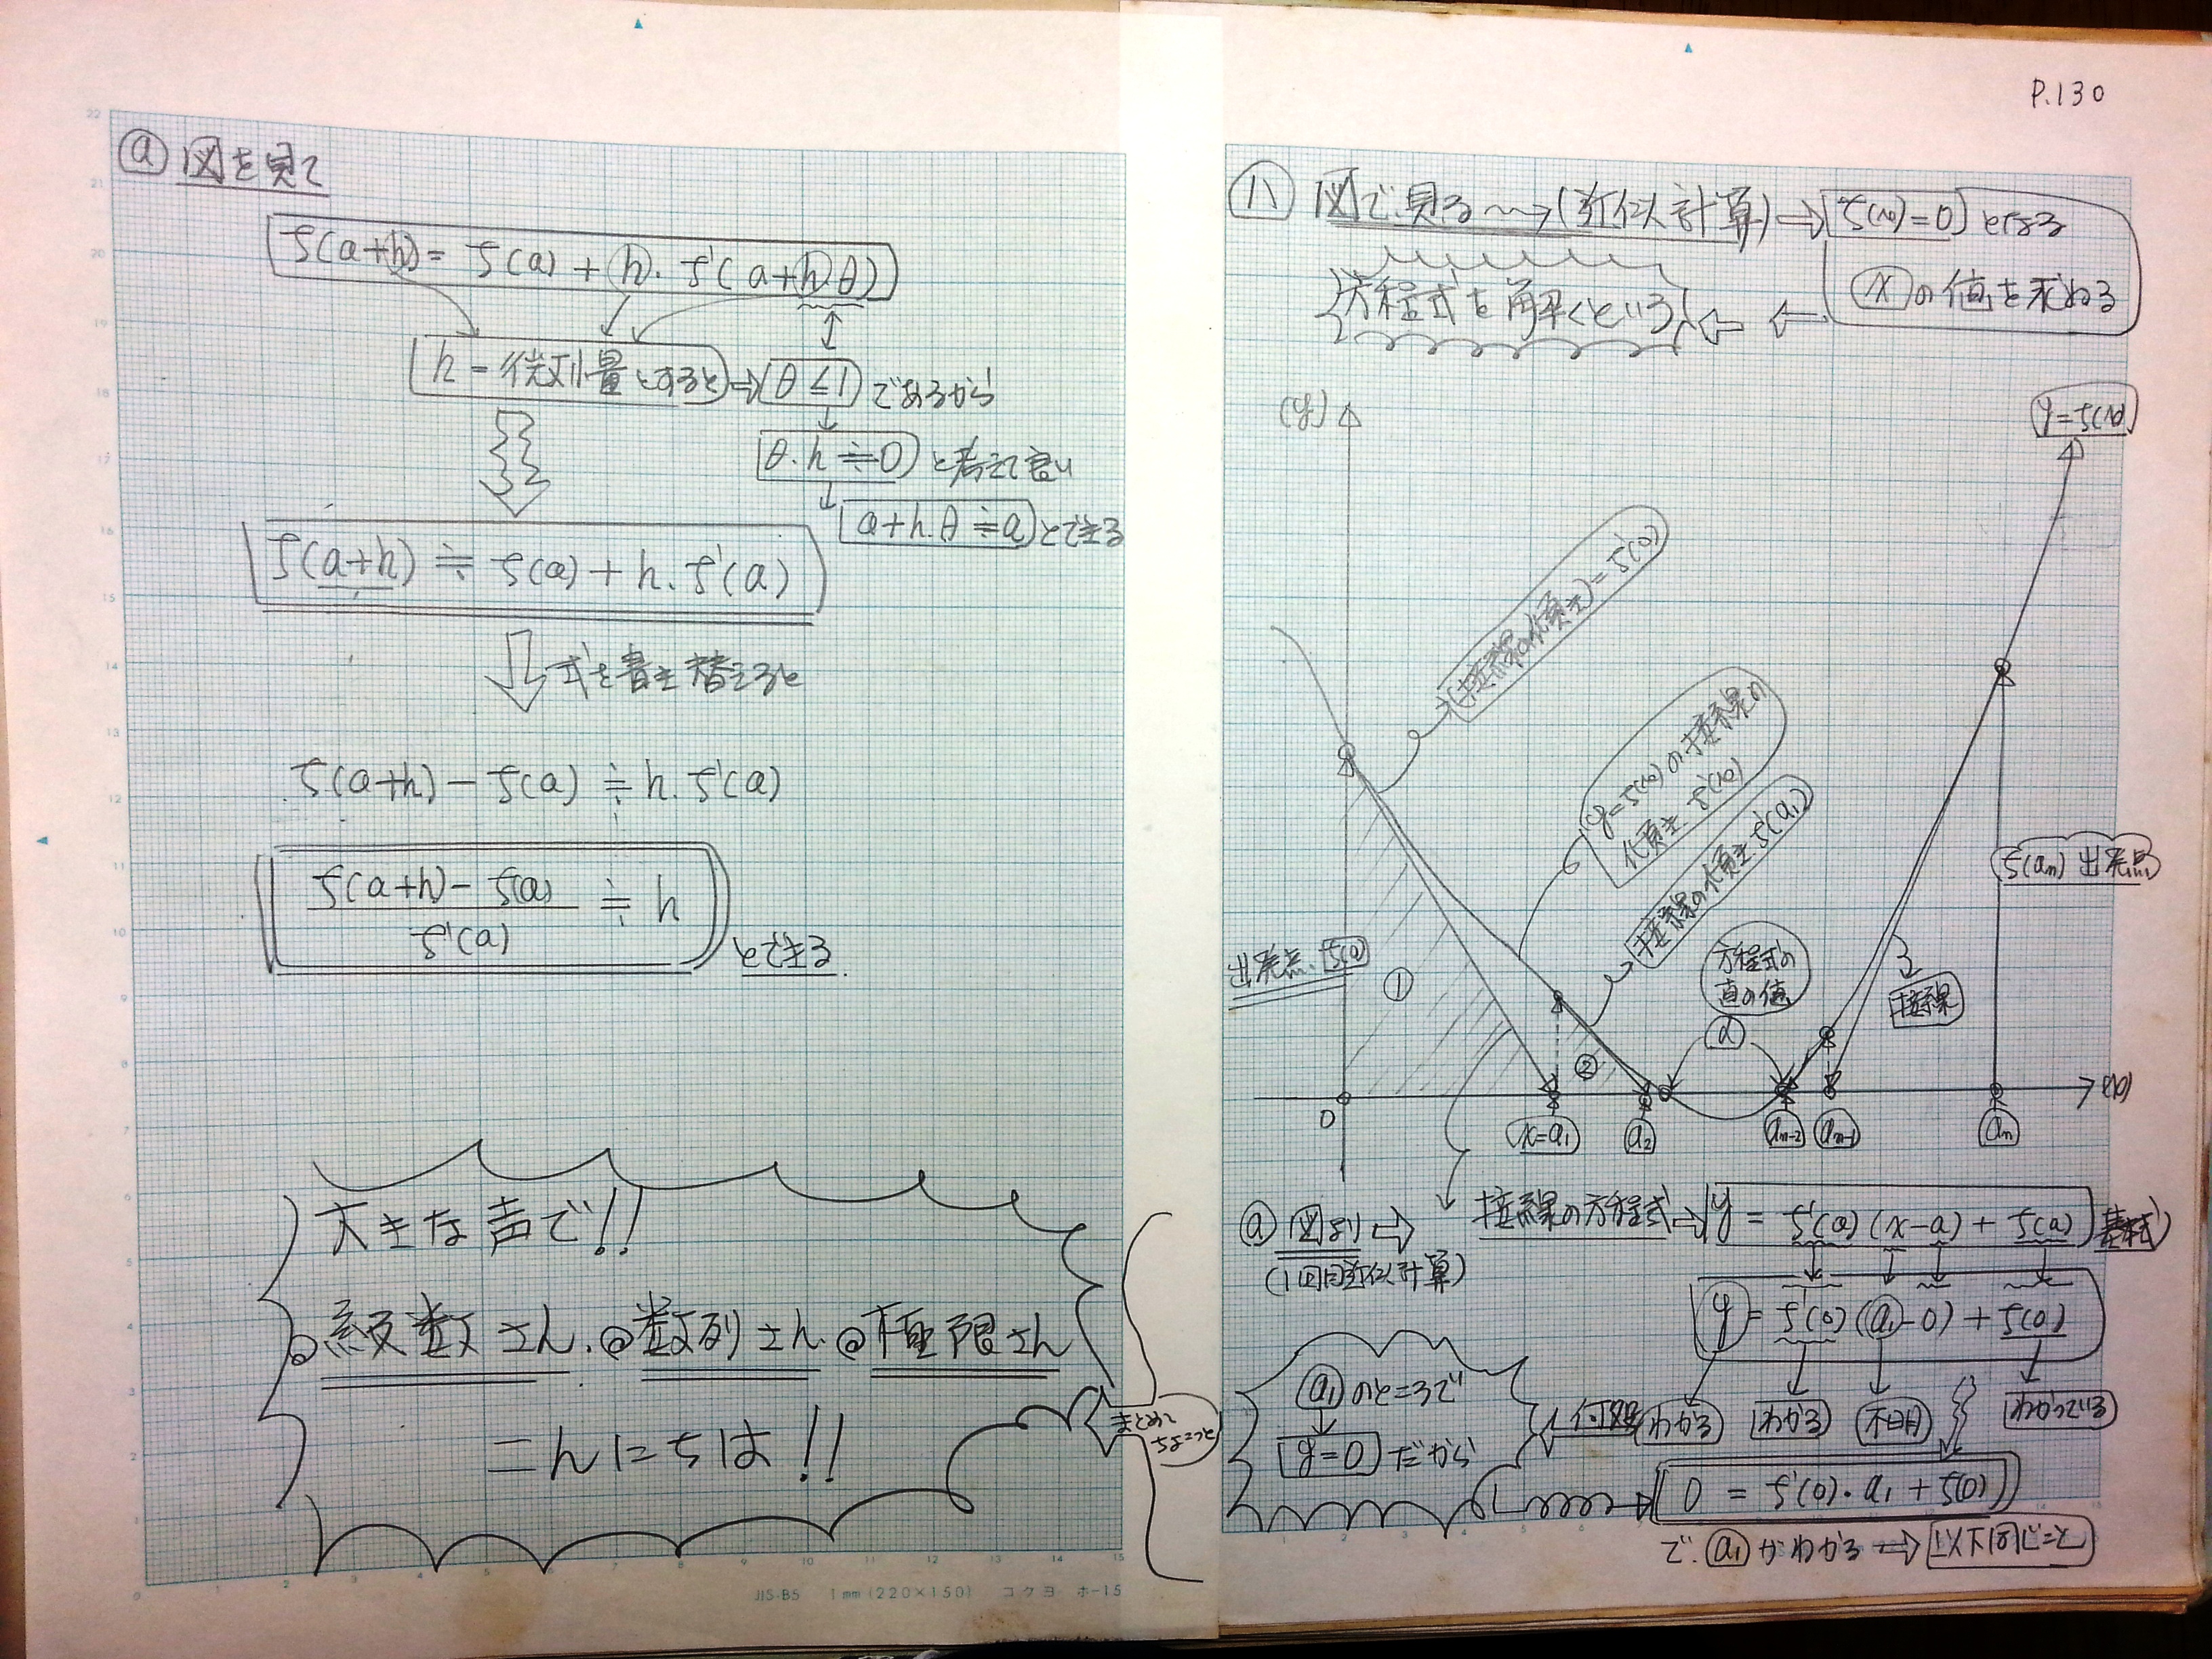 ⓐ 図を見て
f(a+h) = f(a) + h・f'(a+hθ)
h = 微小量とすると → θ≦1 であるから
θ・h≒0 と考えて良い
a+h・θ≒a とできる
f(a+h) ≒ f(a) + h・f'(a)
式を書き替えると
f(a+h) - f(a) ≒ h・f'(a)
f(a+h) - f(a)
f'(a)
≒ h
とできる.
大きな声で!!
◎級数さん.◎数列さん.◎極限さん
こんにちは!!
まとめて
ちょこっと
JIS-B5 1mm(220×150) コクヨ ホ-15
P.130
ハ 図で見る → (近似計算) → f(x)=0 とする
xの値を求める
方程式を解くという
(y)
y=f(x)
(接線の代頂き) = f'(0)
y=f(x)の接線の
代頂き f'(x)
接線の代頂き f'(a₁)
f(aₙ) 出発点
出発点 f(0)
方程式の
直の値
α
接線
①
②
0
(x)
x=a₁
a₂
aₙ₋₂
aₙ₋₁
aₙ
ⓐ 図より ⇨ 接線の方程式 → y = f'(a)(x-a) + f(a) 基本式
(1回目近似計算)
y = f'(0)(a₁-0) + f(0)
わかる
わかる
不明
わかっている
何故
a₁ のところで
y=0 だから
0 = f'(0)・a₁ + f(0)
で. a₁ がわかる → 以下同じこと